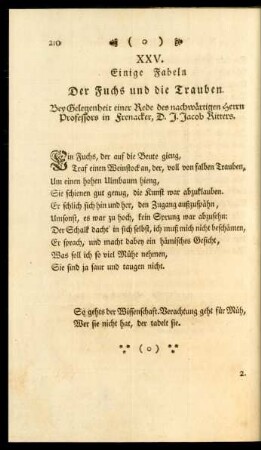 210 ( o )
XXV.
Einige Fabeln
Der Fuchs und die Trauben.
Bey Gelegenheit einer Rede des nachwärtigen Herrn
Professors in Frenacker, D. J. Jacob Ritters.
Ein Fuchs, der auf die Beute gieng,
Traf einen Weinstock an, der, voll von falben Trauben,
Um einen hohen Ulmbaum hieng,
Sie schienen gut genug, die Kunst war abzuklauben.
Er schlich sich hin und her, den Zugang auszuspähn,
Umsonst, es war zu hoch, kein Sprung war abzusehn:
Der Schalk dacht' in sich selbst, ich muß mich nicht beschämen,
Er sprach, und macht dabey ein hämisches Gesicht,
Was soll ich so viel Mühe nehmen,
Sie sind ja saur und taugen nicht.
So gehts der Wissenschaft. Verachtung geht für Müh,
Wer sie nicht hat, der tadelt sie.
( o )
2.